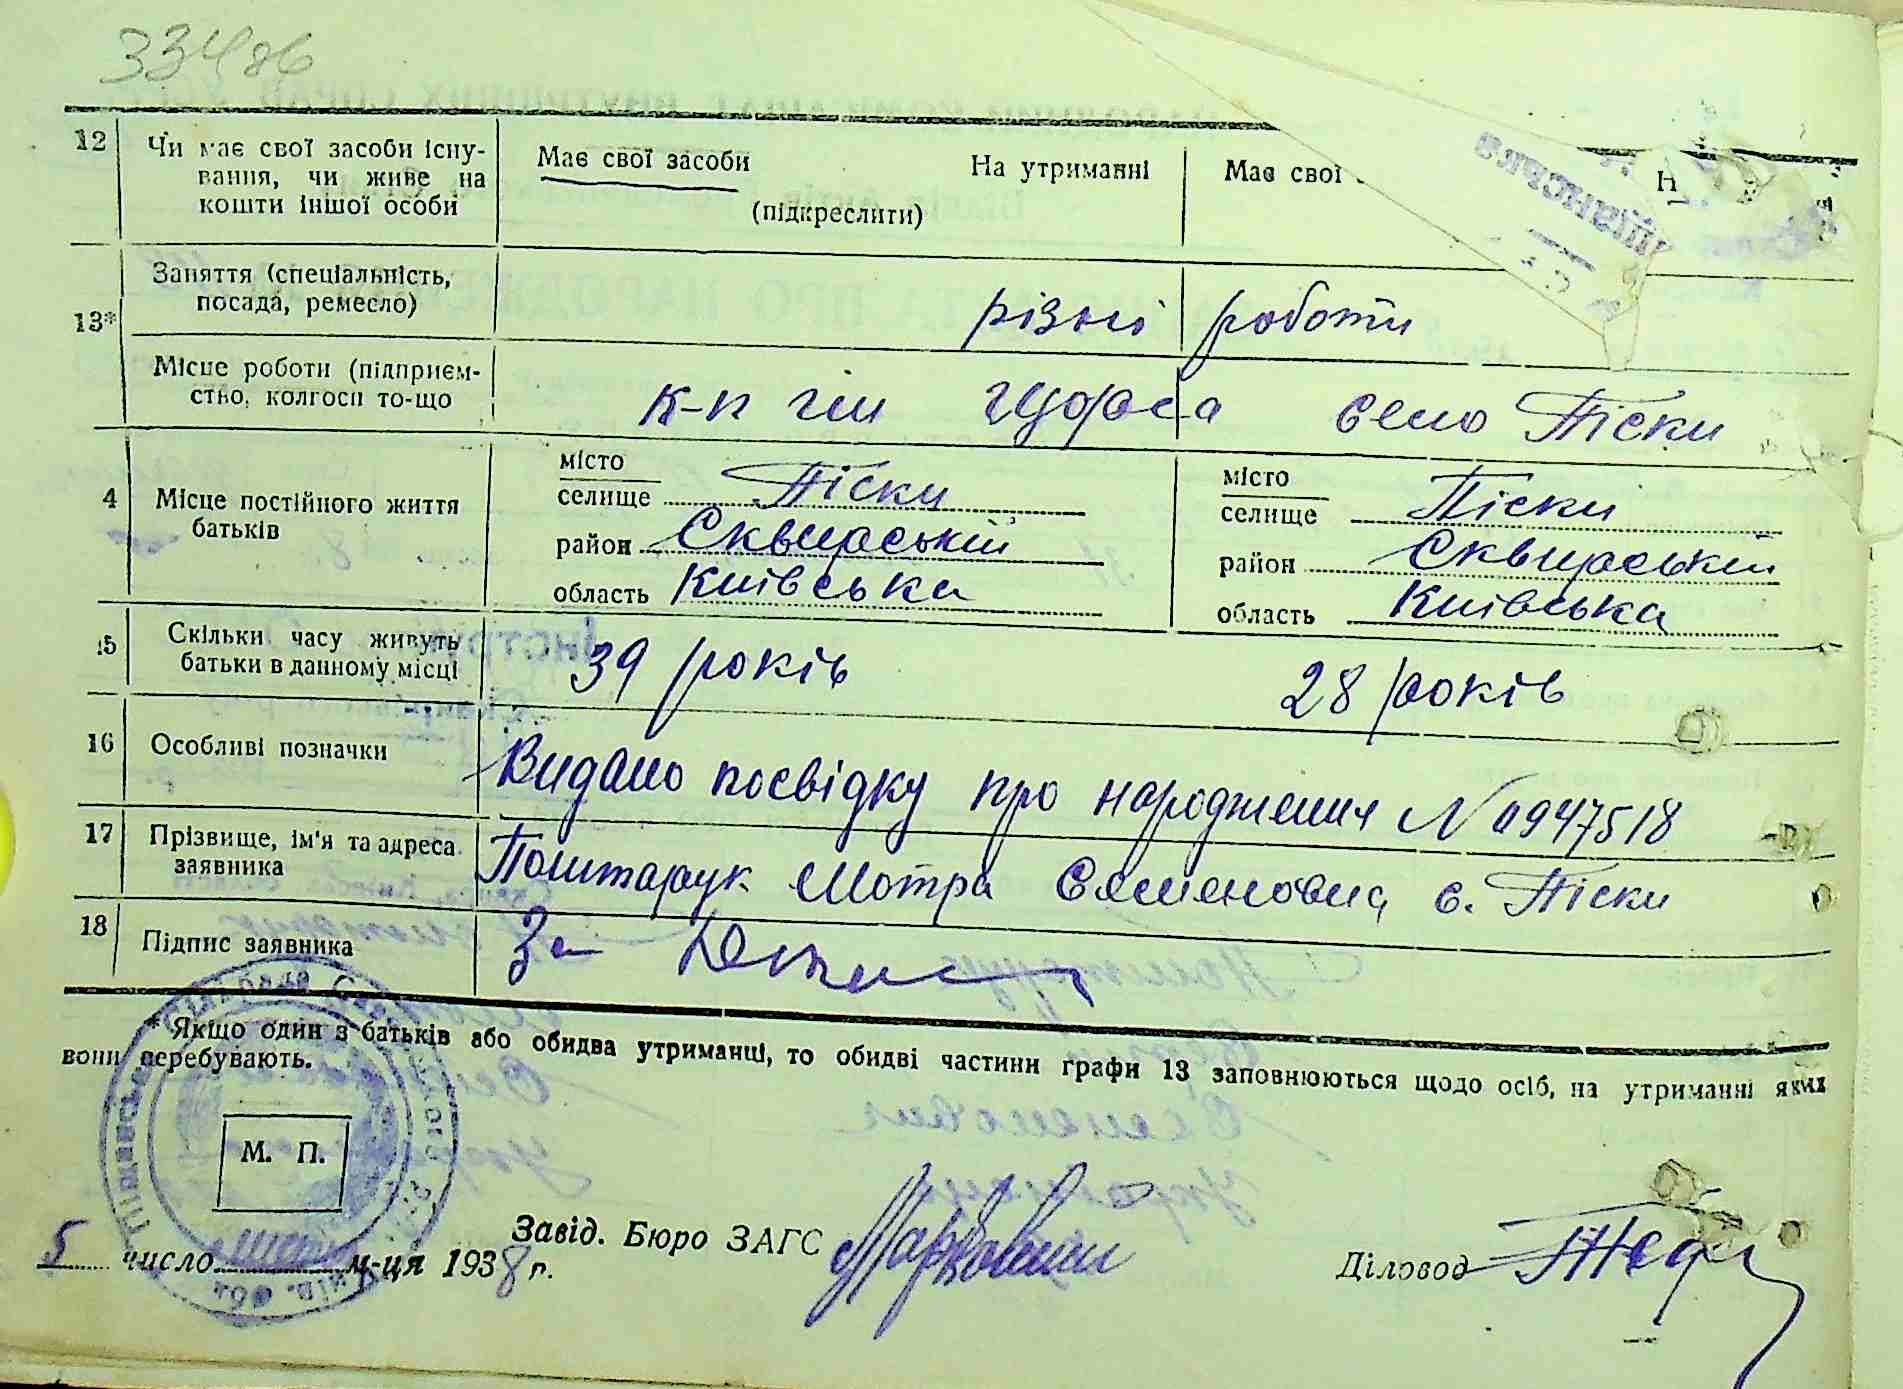 334 зв
12 Чи має свої засоби існу- Має свої засоби На утриманні Має свої Н
вання, чи живе на
кошти іншої особи (підкреслити)
Заняття (спеціальність,
посада, ремесло) різні роботи
13*
Місце роботи (підприєм-
ство, колгосп то-що к-п ім Щорса село Піски
місто місто
4 Місце постійного життя селище Піски селище Піски
батьків район Сквирській район Сквирській
область Київська область Київська
15 Скільки часу живуть
батьки в данному місці 39 років 28 років
16 Особливі позначки Видано посвідку про народження N 0947518
17 Прізвище, ім'я та адреса
заявника Поштарук Мотра Семеновна с. Піски
18 Підпис заявника За
* Якщо один з батьків або обидва утриманці, то обидві частини графи 13 заповнюються щодо осіб, на утриманні яких
вони перебувають.
М. П.
Завід. Бюро ЗАГС
5 число м-ця 1938 р. Діловод